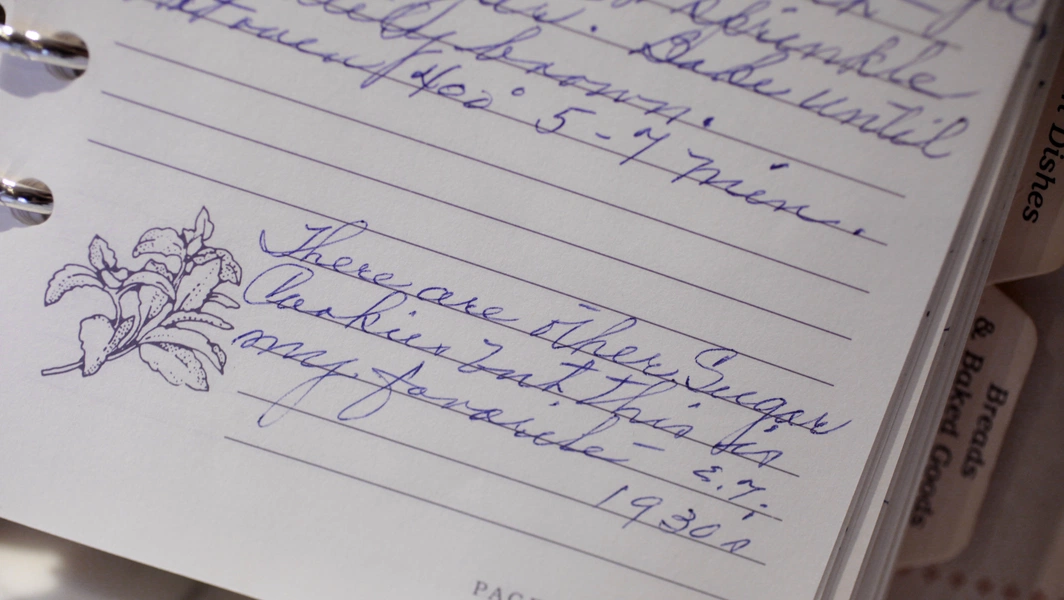 sprinkle
Bake until
brown.
400° 5-7 min.
There are other Sugar
Cookies but this is
my favorite - E.T.
1930s
PAGE
Dishes
Breads
& Baked Goods